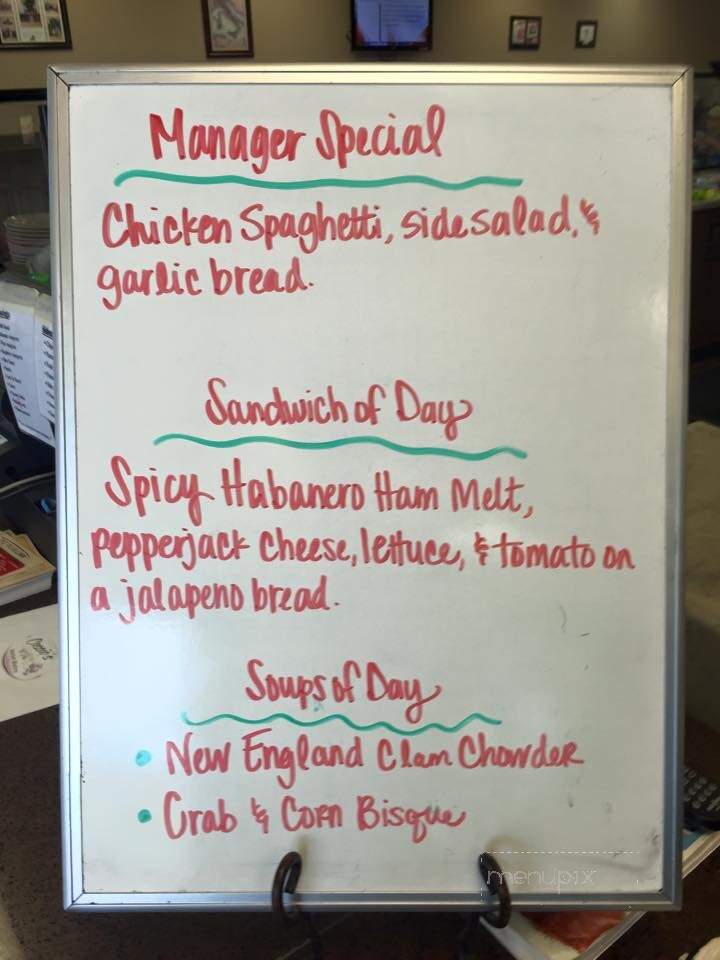 Manager Special
Chicken Spaghetti, side salad, &
garlic bread.
Sandwich of Day
Spicy Habanero Ham Melt,
pepperjack cheese, lettuce, & tomato on
a jalapeno bread.
Soups of Day
• New England Clam Chowder
• Crab & Corn Bisque
menupix